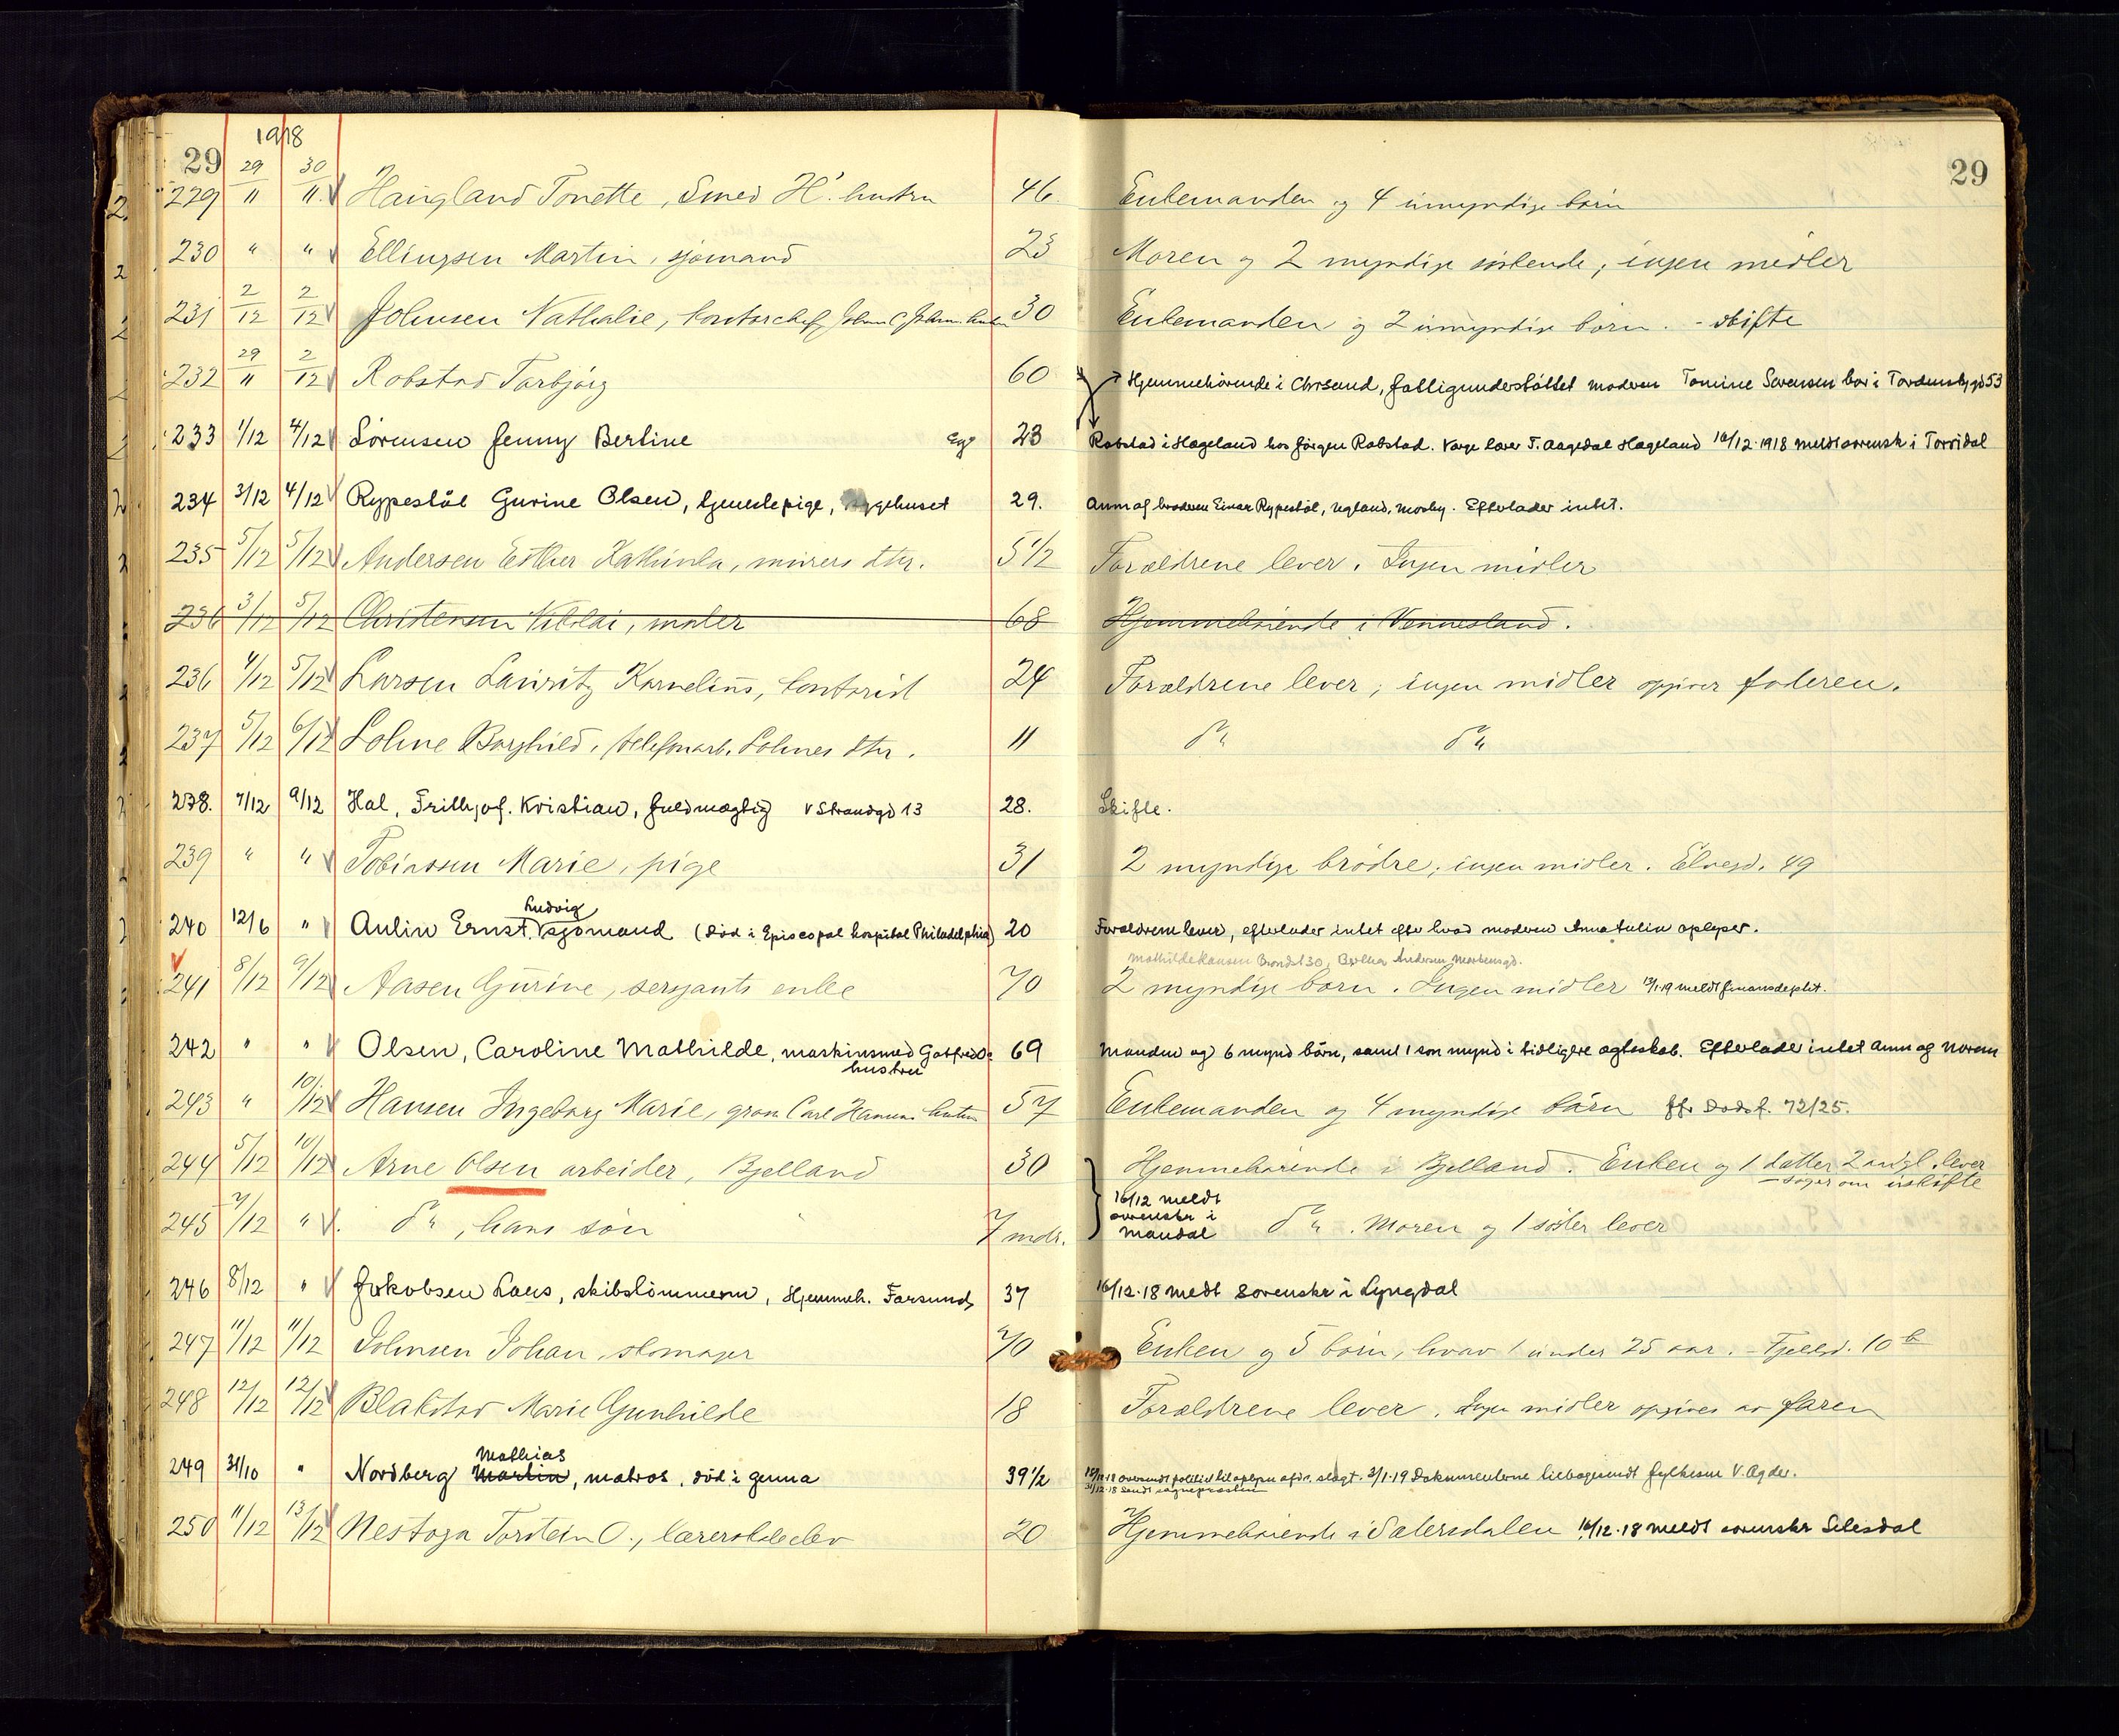 1918
29 29
229 29/11 30/11 Haugland Tonette, Smed H'. hustru 46 Enkemanden og 4 umyndige børn
230 " " Ellingsen Martin, sjømand 23 Moren og 2 myndige søskende, ingen midler
231 2/12 2/12 Johnsen Nathalie, kontorchef John C. Johns. hustru 30 Enkemanden og 2 umyndige børn. - Skifte
232 29/11 2/12 Robstad Torbjørg 60 Hjemmehørende i Chrsand, fattigunderstøttet moderen Tomine Sørensen bor i Tordensbygd 53
233 1/12 4/12 Sørensen Jenny Berline 23 Robstad i Hægeland hos Jørgen Robstad. Værge lærer T. Aagedal Hægeland 16/12-1918 meldt sorensk i Torridal
234 3/12 4/12 Rypestøl Gurine Olsen, tjenestepige, sygehuset 29. Anm af broderen Einar Rypestøl, Ugland, Mosby. Efterlader intet.
235 5/12 5/12 Andersen Esther Kathinka, murers dtr. 5 1/2 Forældrene lever. Ingen midler
236 3/12 5/12 Christensen Nikolai, maler 68 Hjemmehørende i Vennesland.
236 4/12 5/12 Larsen Lauritz Kornelius, kontorist 24 Forældrene lever; ingen midler opgiver faderen.
237 5/12 6/12 Lohne Borghild, telefonarb. Lohnes dtr. 11 do do
238. 7/12 9/12 Hal, Frithjof. Kristian, fuldmægtig V Strandgd 13 28. Skifte.
239 " " Tobiassen Marie, pige 31 2 myndige brødre; ingen midler. Elvegd. 49
Ludvig
240 12/6 " Aulin Ernst, sjømand (død i Episcopal hospital Philadelphia) 20 Forældrene lever, efterlader intet efter hvad moderen Anna Aulin oplyser.
Mathilde Hansen Brandst 30, Bertha Andersen, Markensgd.
241 8/12 9/12 Aasen Gurine, sersjants enke 70 2 myndige børn. Ingen midler 13/1.19 meldt finansdeptet.
242 " " Olsen, Caroline Mathilde, maskinsmed Gotfred Os 69 Manden og 6 mynd børn, samt 1 søn mynd i tidligere ægteskab. Efterlader intet Anm af
hustru
243 " 10/12 Hansen Ingeborg Marie, Carl Hansens hustru 57 Enkemanden og 4 myndige børn jfr dødsf. 72/25.
244 5/12 10/12 Arne Olsen arbeider, Bjelland 30 Hjemmehørende i Bjelland. Enken og 1 datter 2 aar gl. lever
- søger om uskifte
16/12 meldt sorenskr i Mandal
245 7/12 " do, hans søn 7 mdr. do. Moren og 1 søster lever
246 8/12 " Jakobsen Laus, skibstømmerm, Hjemmeh. Farsund 37 16/12.18 medt sorenskr i Lyngdal
247 11/12 11/12 Johnsen Johan, skomager 70 Enken og 5 børn, hvorav 1 under 25 aar. - Fjelldg. 10 b
248 12/12 12/12 Blakstad Marie Gunhilde 18 Forældrene lever. Ingen midler opgives av faren
Mathias
249 31/10 " Nordberg Martin, matros, død i Genua 39 1/2 oversendt politiet til oplysn afdr. slægt. 3/1.19 Dokumenterne tilbagesendt fylkesm V. Agder.
31/12.18 sendt sognepresten
250 11/12 13/12 Nestøga Torstein O., lærerskoleelev 20 Hjemmehørende i Sætersdalen 16/12.18 meldt sorenskr Setesdal